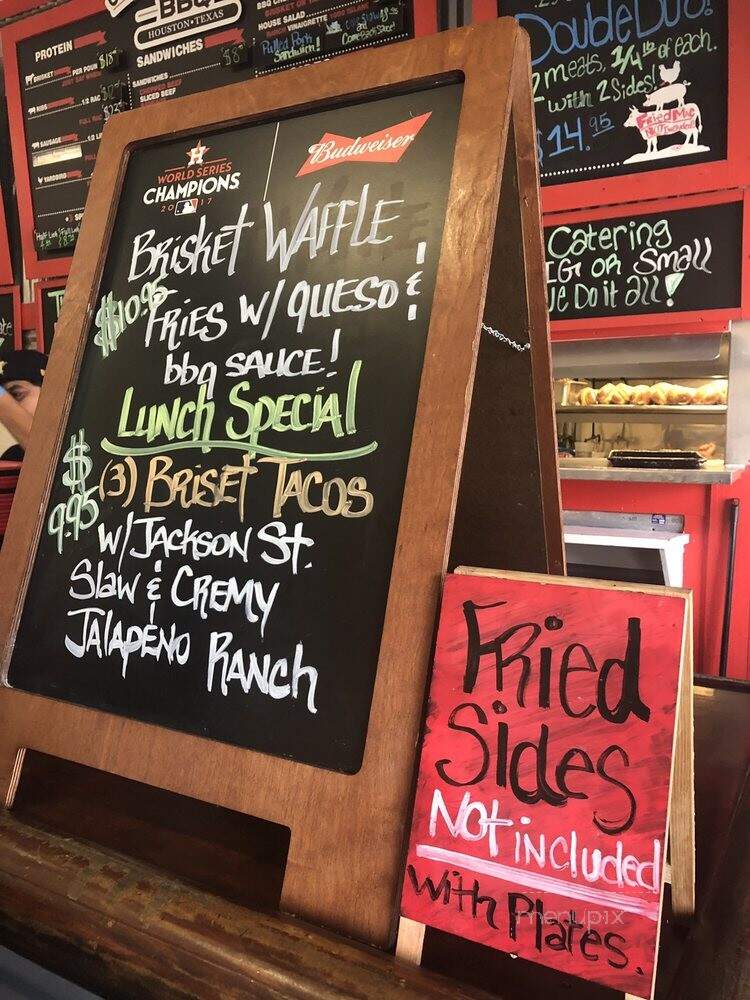 BBQ
HOUSTON · TEXAS
PROTEIN
SANDWICHES
SANDWICHES
SLICED BEEF
HOUSE SALAD
Pulled Pork
Sandwich!
DOUBLE DUO!
2 meats, 1/4 lb of each.
with 2 Sides!
$14.95
Fried Mac
Not Included
Catering
BIG OR Small
We Do it all!
WORLD SERIES
CHAMPIONS
2017
Budweiser
BRISKET WAFFLE
FRIES W/ QUESO &
$10.95
bbq SAUCE!
LUNCH SPECIAL
$9.95
(3) BRISET TACOS
W/ JACKSON ST.
SLAW & CREMY
JALAPEÑO RANCH
FRied
Sides
Not included
with Plates.
menupix